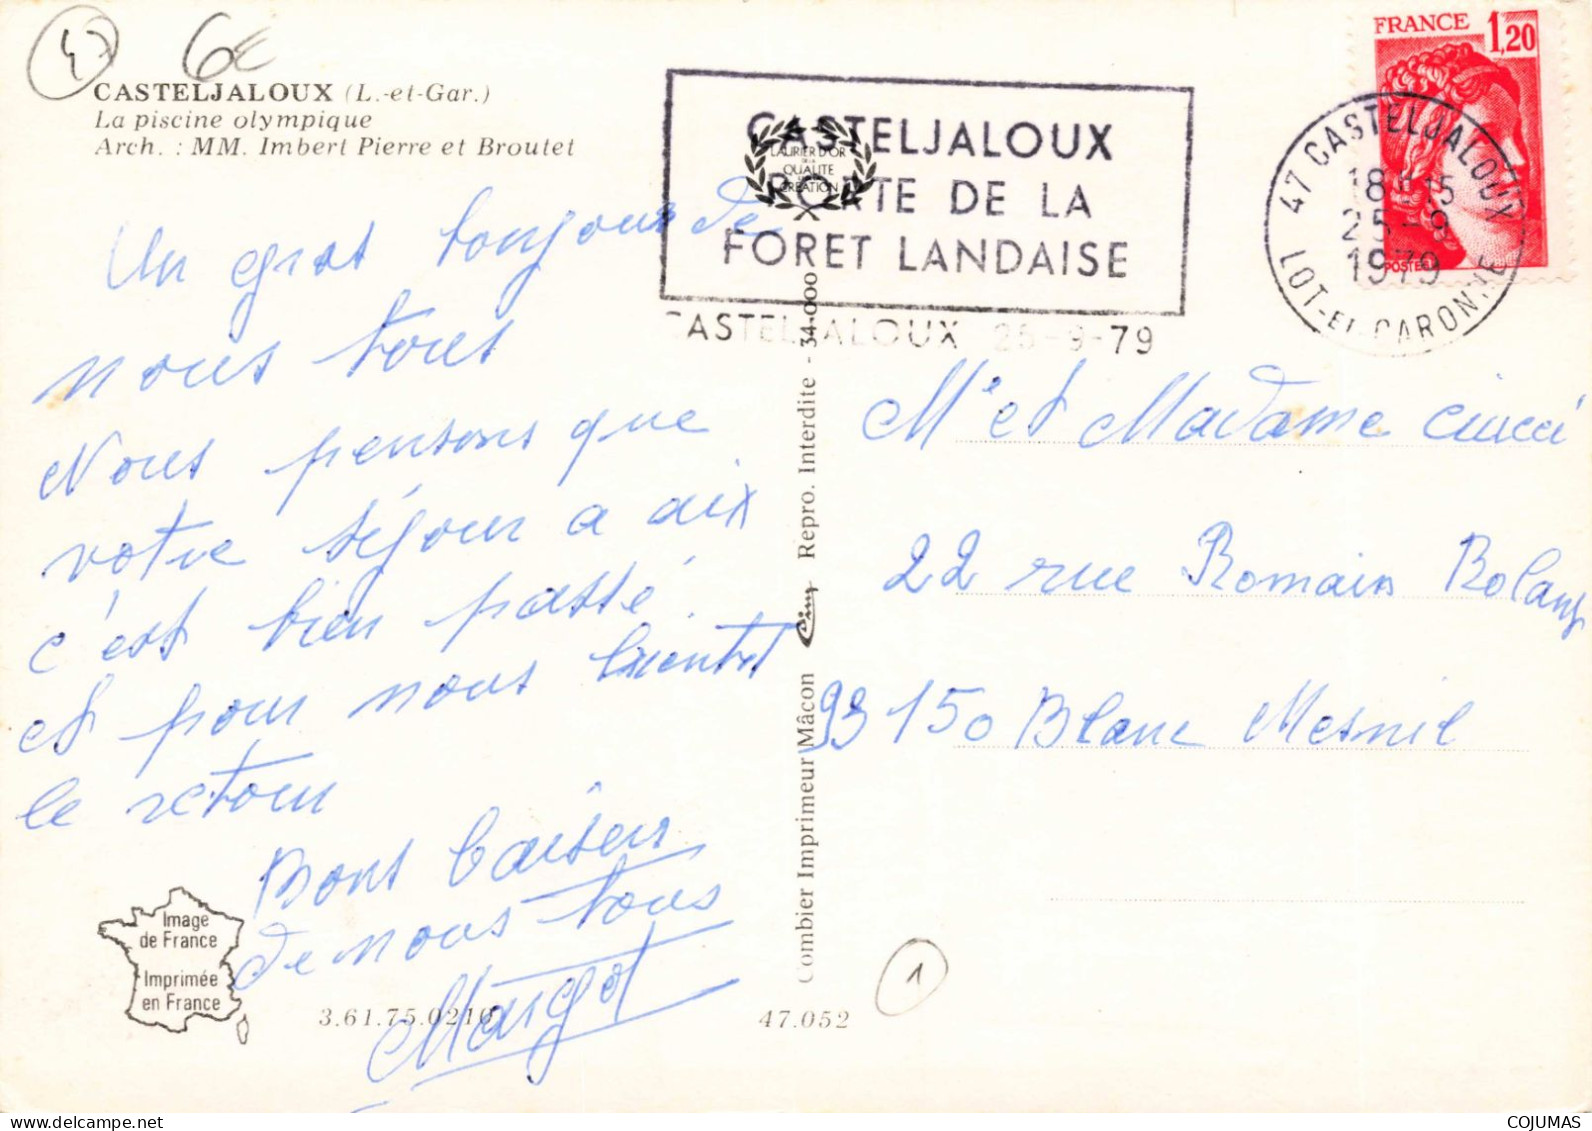 47
6€
CASTELJALOUX (L.-et-Gar.)
La piscine olympique
Arch. : MM. Imbert Pierre et Broutet
CASTELJALOUX
PORTE DE LA
FORET LANDAISE
CASTELJALOUX 25-9-79
LAURIER D'OR
DE LA
QUALITE
CREATION
FRANCE 1,20
POSTES
47 CASTELJALOUX
18H15
25-9
1979
LOT-ET-GARONNE
Un gros bonjour de
nous tous
Nous pensons que
votre séjour a aix
c'est bien passé.
et pour nous bientot
le retour
Bons baisers
de nous tous
Margot
Combier Imprimeur Mâcon Cim Repro. Interdite - 34.000
Mr et Madame Ciucci
22 rue Romain Roland
93150 Blanc Mesnil
Image
de France
Imprimée
en France
3.61.75.0210
47.052
1
COJUMAS